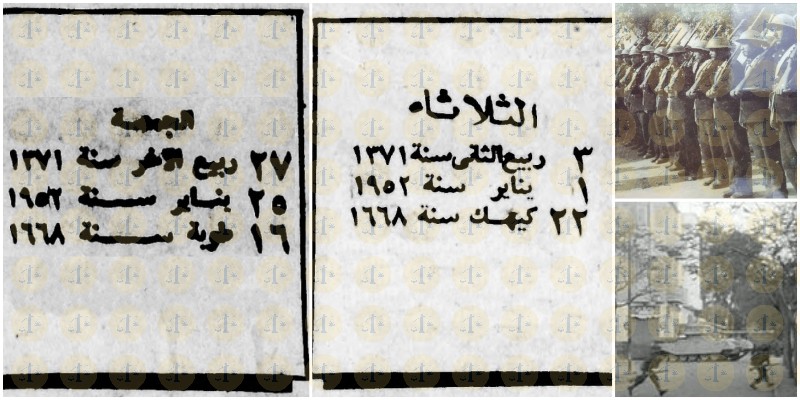 الثلاثاء
٣ ربيع الثانى سنة ١٣٧١
١ يناير سنة ١٩٥٢
٢٢ كيهك سنة ١٦٦٨
الجمعة
٢٧ ربيع الآخر سنة ١٣٧١
٢٥ يناير سنة ١٩٥٢
١٦ طوبة سنة ١٦٦٨